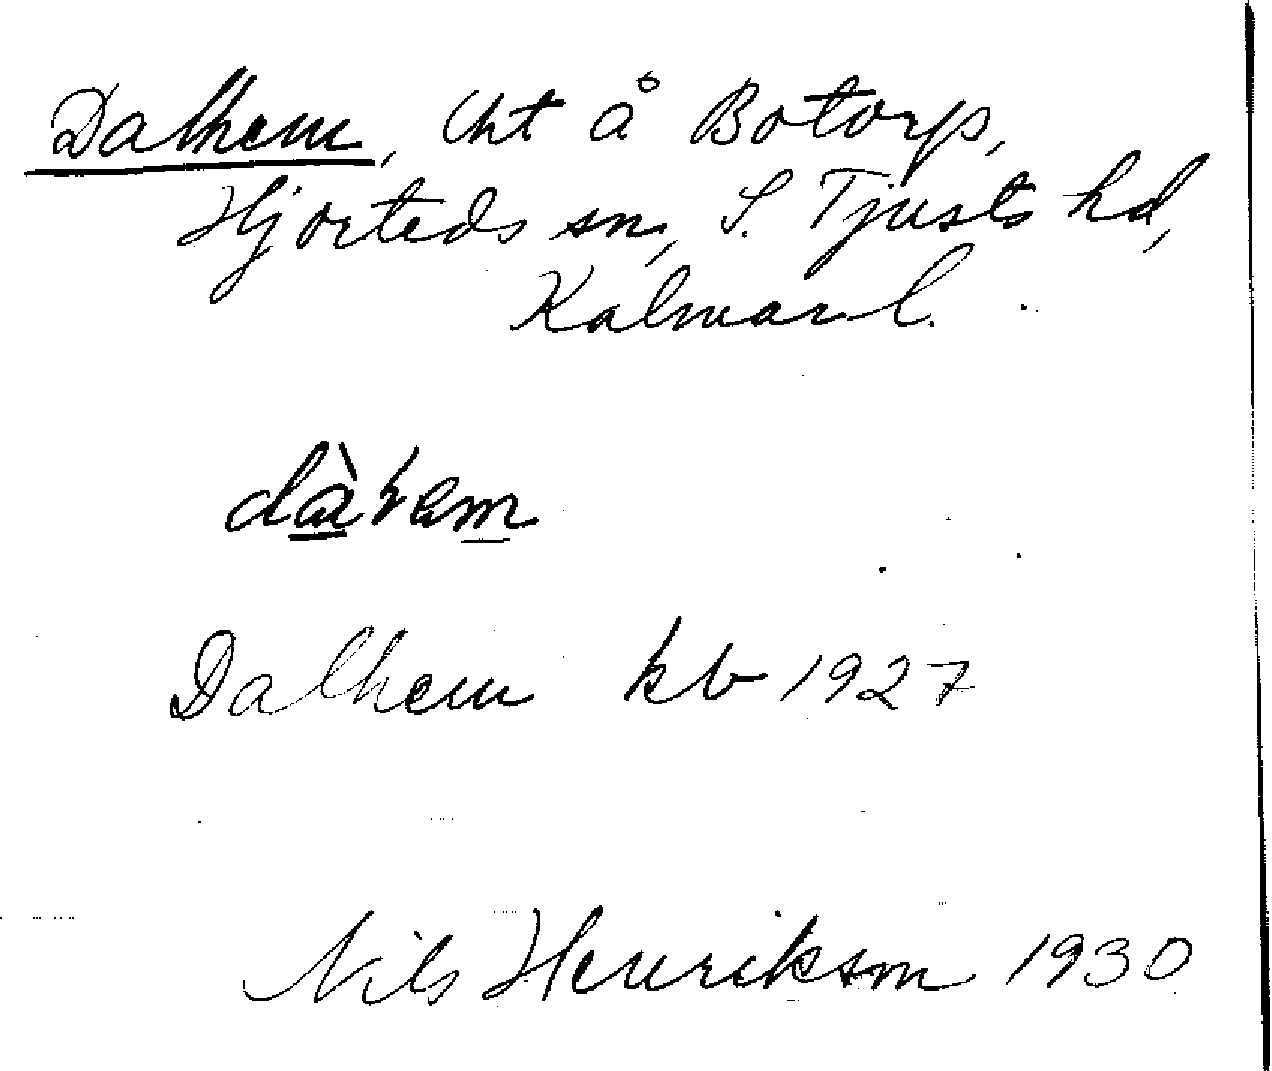 Dalhem, lht å Botorp,
Hjorteds sn, S. Tjusts hd,
Kalmar l.
Dalhem kb 1927
Nils Henrikson 1930